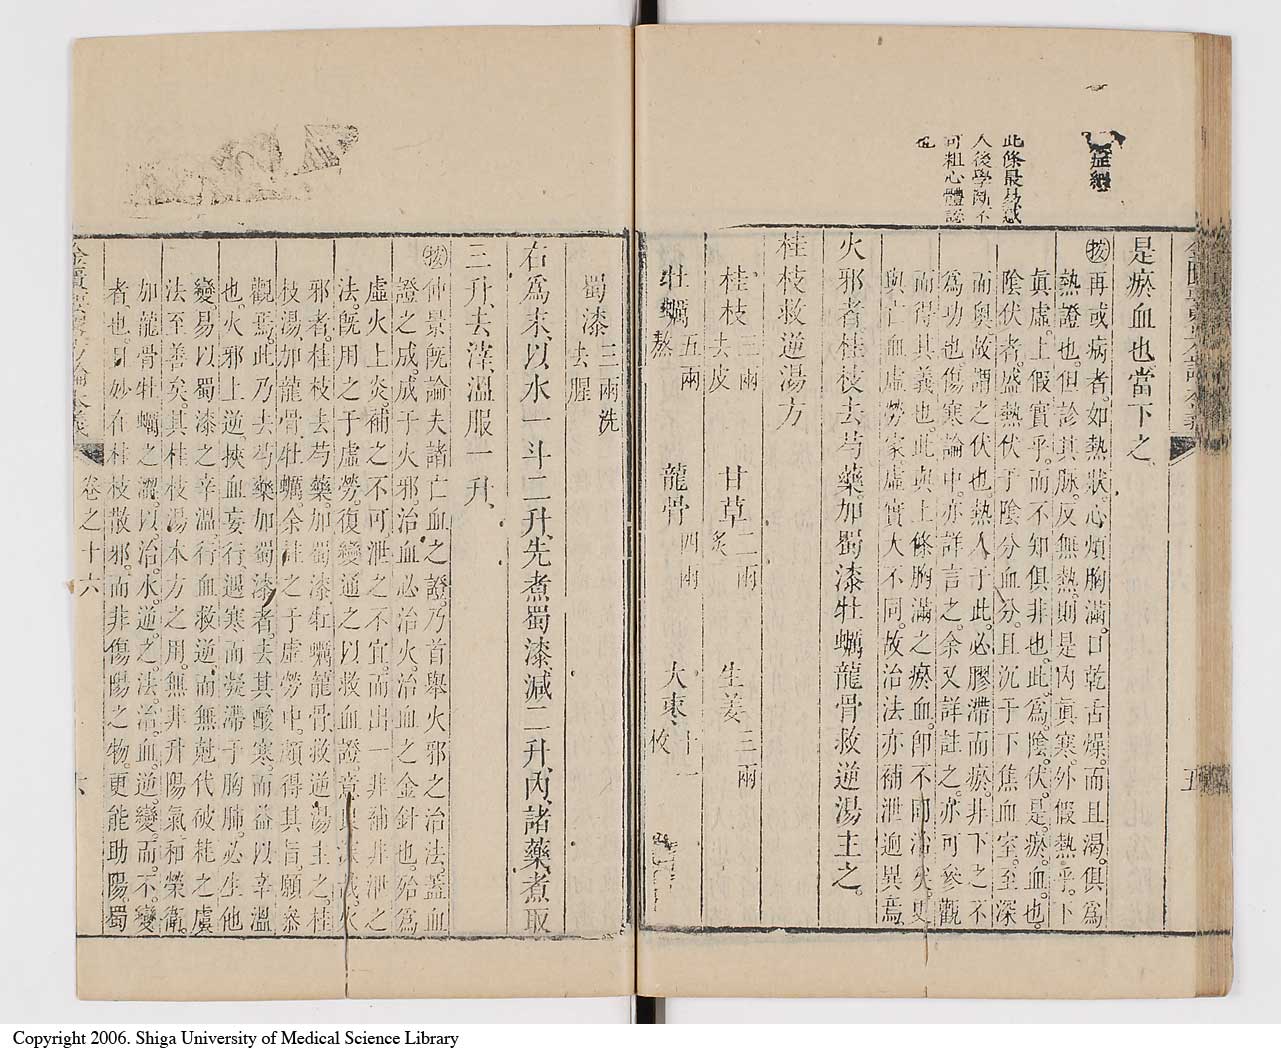 此條最易惑
人後學斷不
可粗心體認
也
是瘀血也當下之
按再或病者如熱狀心煩胸滿口乾舌燥而且渴俱爲
熱證也但診其脉反無熱則是內眞寒外假熱乎下
眞虛上假實乎而不知俱非也此爲陰伏是瘀血也
陰伏者盛熱伏于陰分血分且沉于下焦血室至深
而奧故謂之伏也熱入于此必膠滯而瘀非下之不
爲功也傷寒論中亦詳言之余又詳註之亦可參觀
而得其義也此與上條胸滿之瘀血卽不同治矣更
與亡血虛勞家虛實大不同故治法亦補泄逈異焉
火邪者桂枝去芍藥加蜀漆牡蠣龍骨救逆湯主之
桂枝救逆湯方
桂枝三兩去皮 甘草二兩炙 生姜三兩
牡蠣五兩熬 龍骨四兩 大棗十二枚
蜀漆三兩洗去腥
右爲末以水一斗二升先煮蜀漆減二升內諸藥煮取
三升去滓溫服一升
按仲景旣論夫諸亡血之證乃首舉火邪之治法蓋血
證之成成于火邪治血必治火治血之金針也殆爲
虛火上炎補之不可泄之不宜而出一非補非泄之
法旣用之于虛勞復變通之以救血證意良深哉火
邪者桂枝去芍藥加蜀漆牡蠣龍骨救逆湯主之桂
枝湯加龍骨牡蠣余註之于虛勞中頗得其旨願參
觀焉此乃去芍藥加蜀漆者去其酸寒而益以辛溫
也火邪上逆挾血妄行遇寒而凝滯于胸肺必生他
變易以蜀漆之辛溫行血救逆而無尅代破耗之虞
法至善矣其桂枝湯本方之用無非升陽氣和榮衞
加龍骨牡蠣之澀以治水逆之法治血逆變而不變
者也且妙在桂枝散邪而非傷陽之物更能助陽蜀
卷之十六